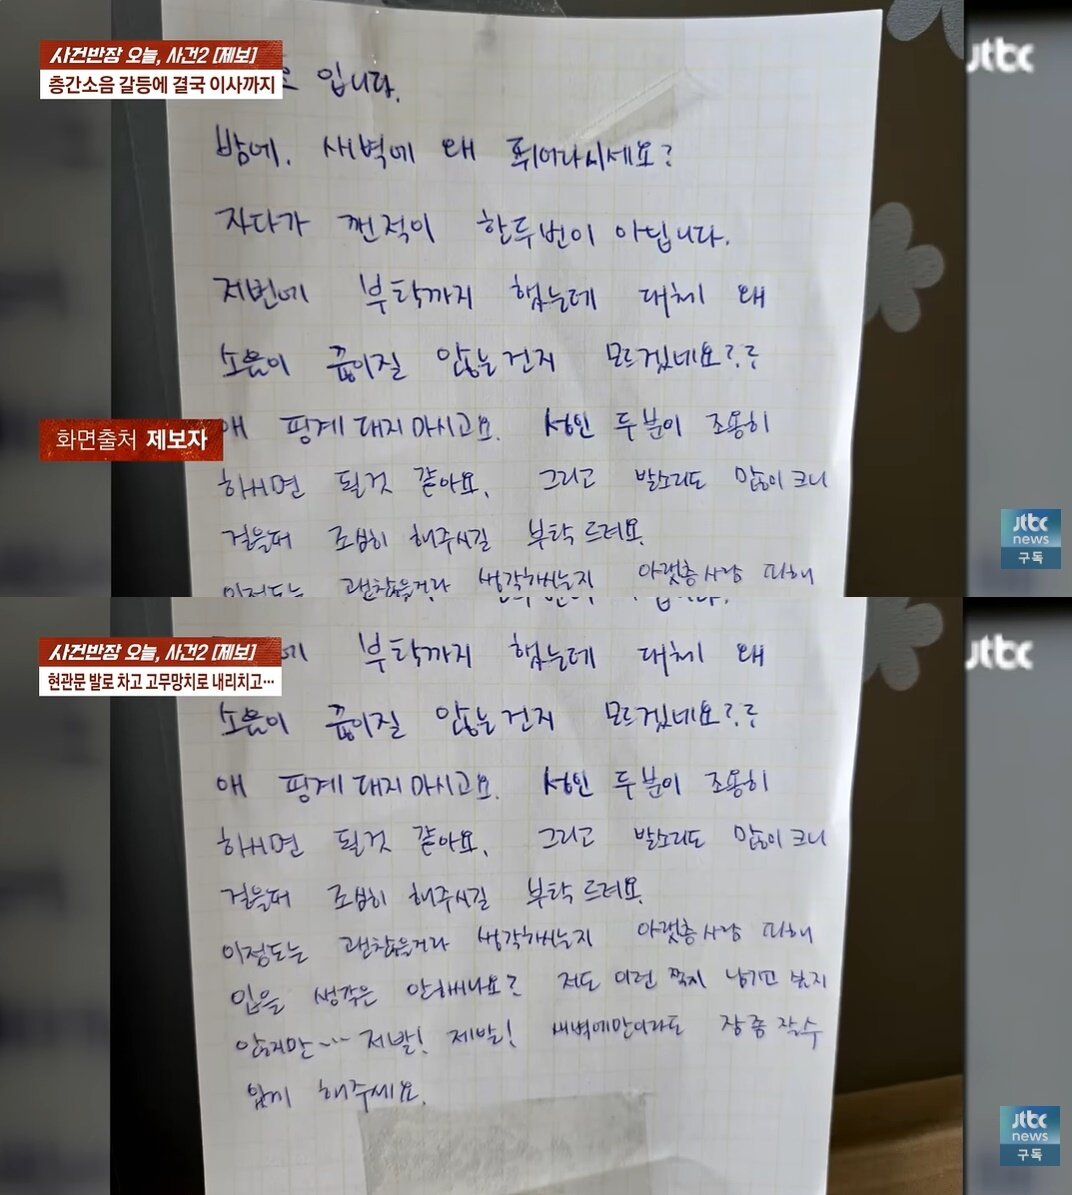 사건반장 오늘, 사건2 [제보]
층간소음 갈등에 결국 이사까지
jtbc
입니다.
밤에. 새벽에 왜 뛰어다니세요?
자다가 깬적이 한두번이 아닙니다.
저번에 부탁까지 했는데 대체 왜
소음이 끊이질 않는건지 모르겠네요??
애 핑계 대지 마시고요. 성인 두분이 조용히
화면출처 제보자
하시면 될것 같아요. 그리고 발소리도 많이 크니
걸을때 조심히 해주시길 부탁 드려요.
이정도는 괜찮을거라 생각하시는지 아랫층 사람 피해
jtbc
news
구독
사건반장 오늘, 사건2 [제보]
현관문 발로 차고 고무망치로 내리치고…
jtbc
에 부탁까지 했는데 대체 왜
소음이 끊이질 않는건지 모르겠네요??
애 핑계 대지 마시고요. 성인 두분이 조용히
하시면 될것 같아요. 그리고 발소리도 많이 크니
걸을때 조심히 해주시길 부탁 드려요.
이정도는 괜찮을거라 생각하시는지 아랫층 사람 피해
입을 생각은 안하시나요? 저도 이런 쪽지 남기고 싶지
않지만… 제발! 제발! 새벽에만이라도 잠 좀 잘수
있게 해주세요.
jtbc
news
구독